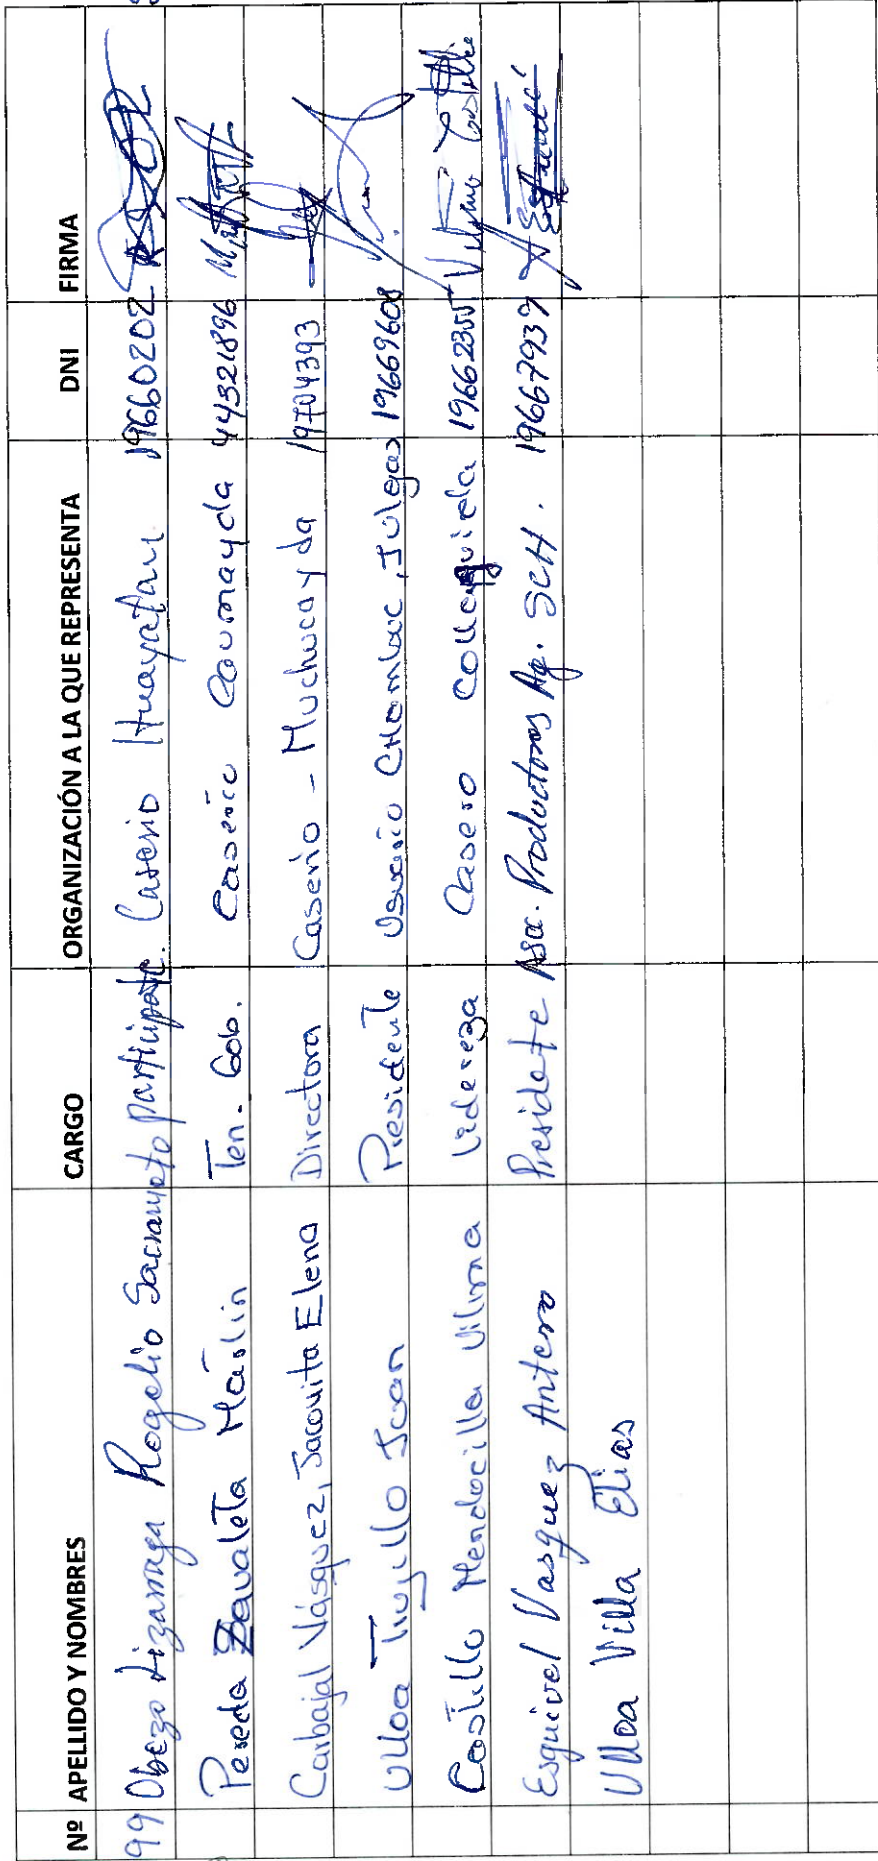 Nº APELLIDO Y NOMBRES CARGO ORGANIZACIÓN A LA QUE REPRESENTA DNI FIRMA
99 Obezo Lizarraga Rogelio Sacramето participate. Caserio Huayatan 19660202
Pereda Zavaleta Marlin Ten. Gob. Caserio Caumayda 44321896
Carbajal Vásquez, Jacovita Elena Directora Caserio - Muchucayda 19704393
Ulloa Trujillo Juan Presidente Usuario CHambuc, Julgas 19669608
Castillo Mendocilla Vilma Lidereza Casero Collayguida Vilma Castillo
Esquivel Vasquez Antero Presidete Asoc. Productores Ag. SCH. 19667939
Ulloa Villa Elias